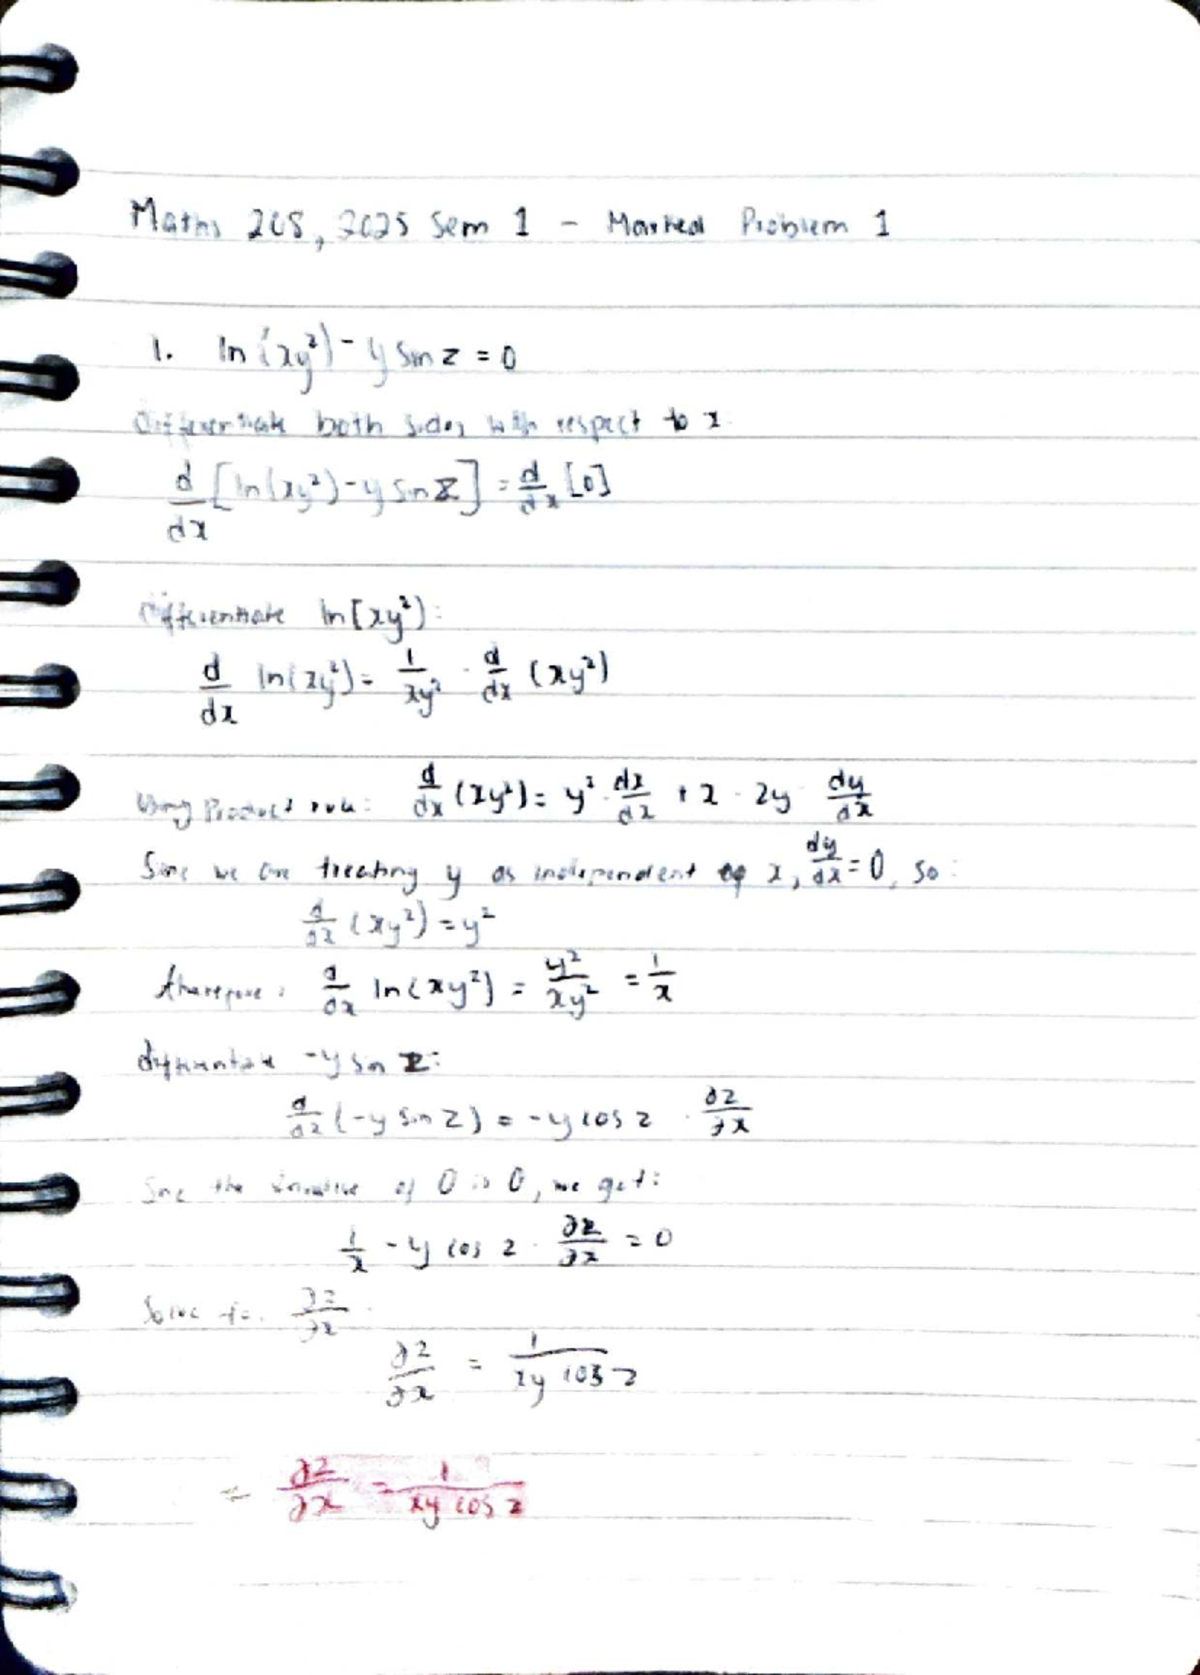 Maths 208, 2025 Sem 1 - Marked Problem 1
1. ln(xy²) - y sin z = 0
Differentiate both sides with respect to x.
d/dx [ln(xy²) - y sin z] = d/dx [0]
Differentiate ln(xy²):
d/dx ln(xy²) = 1/xy² · d/dx (xy²)
Using Product rule: d/dx (xy²) = y² · dx/dx + x · 2y · dy/dx
Since we are treating y as independent of x, dy/dx = 0, so:
d/dx (xy²) = y²
therefore: d/dx ln(xy²) = y²/xy² = 1/x
differentiate -y sin z:
d/dx (-y sin z) = -y cos z · ∂z/∂x
Since the derivative of 0 is 0, we get:
1/x - y cos z · ∂z/∂x = 0
Solve for ∂z/∂x.
∂z/∂x = 1/xy cos z
= ∂z/∂x = 1/xy cos z